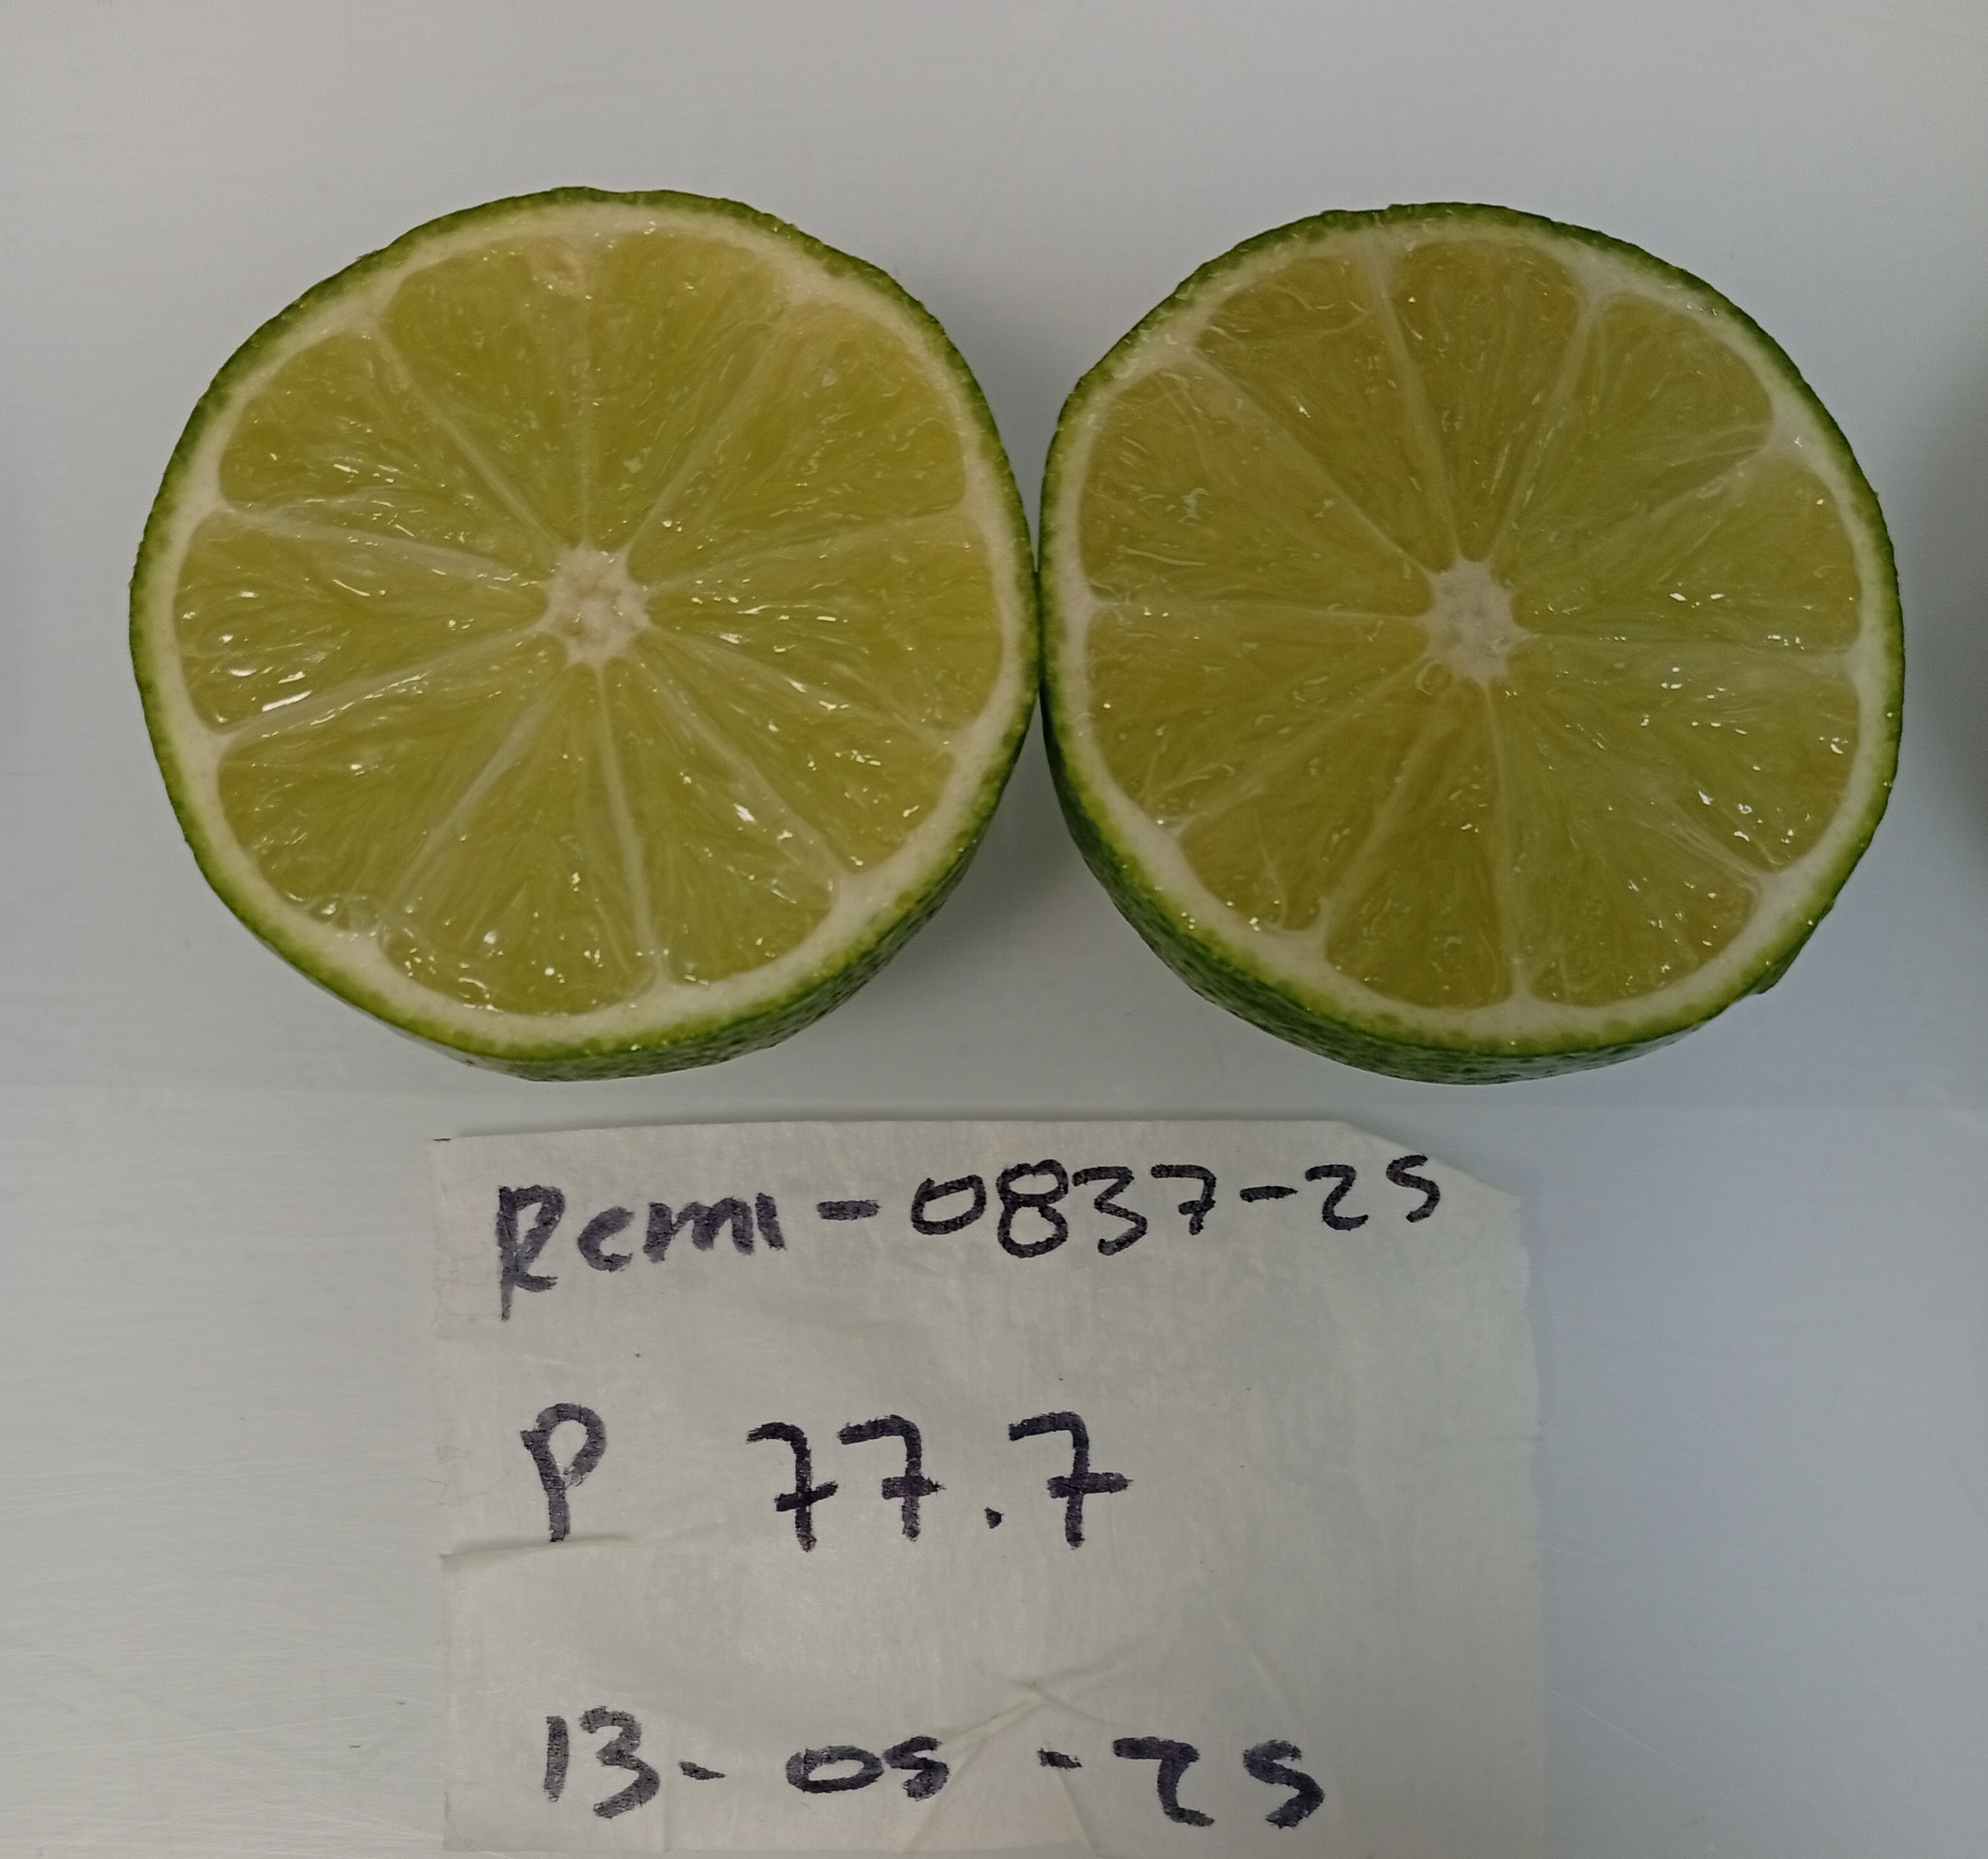 Remi-0837-25
P 77.7
13-05-25